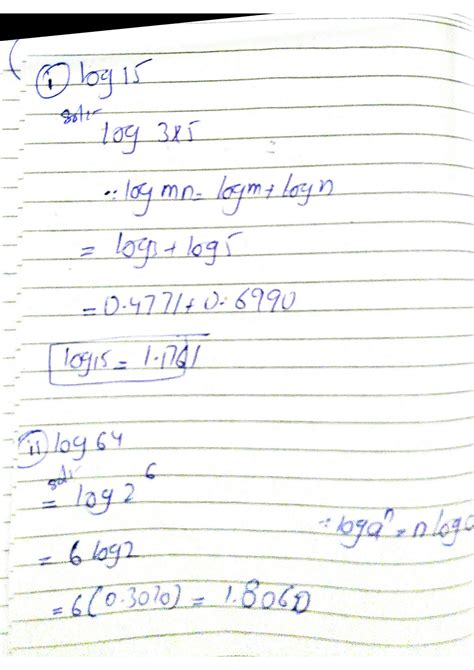 ( i log 15
Sol:-
log 3x5
∵ log mn = log m + log n
= log3 + log5
= 0.4771 + 0.6990
log15 = 1.1761
ii log 64
Sol:-
= log 2^6
∵ log a^n = n log a
= 6 log2
= 6(0.3010) = 1.8060